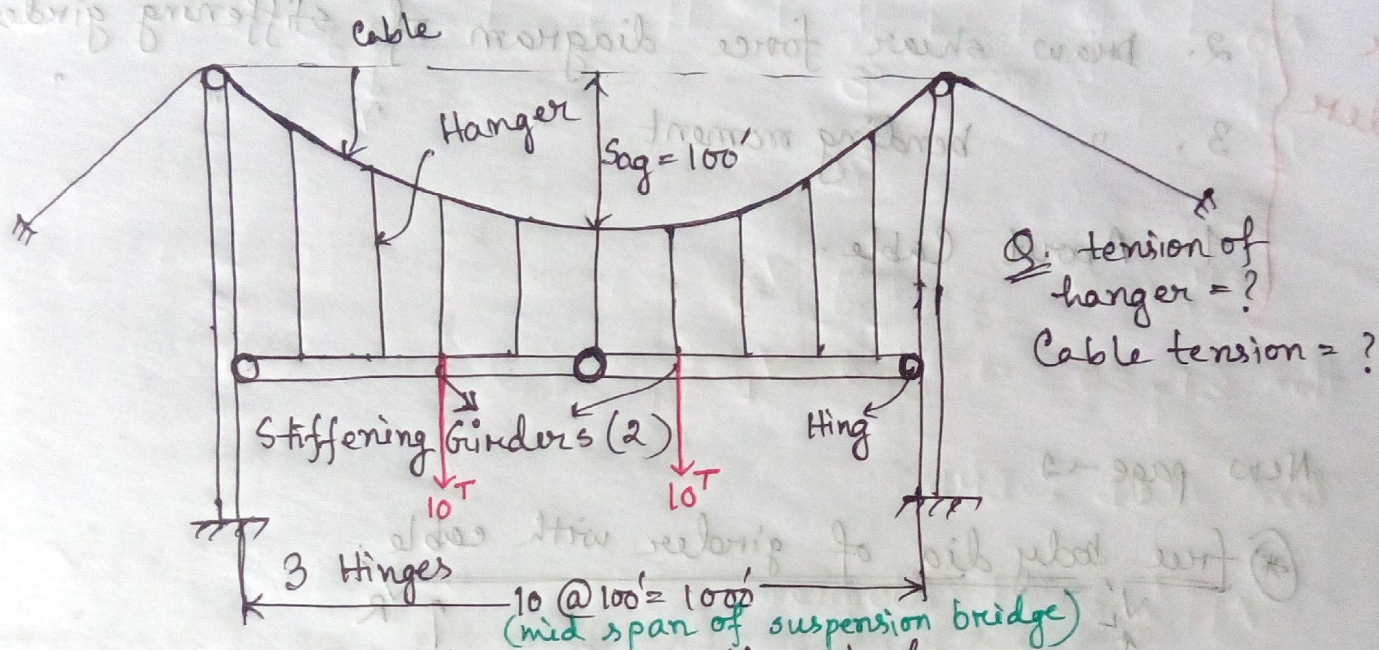 Cable
Hanger
Sag = 100'
Q: tension of
hanger = ?
Cable tension = ?
Stiffening Girders (2)
Hing
10T
10T
3 Hinges
10 @ 100' = 1000'
(mid span of suspension bridge)